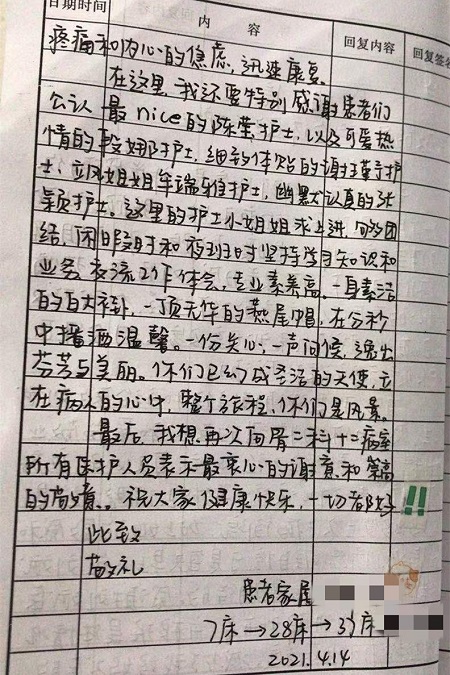 日期时间 内容 回复内容 回复签名
疼痛和内心的焦虑，迅速康复。
在这里，我还要特别感谢患者们
公认最nice的陈莹护士，以及可爱热
情的段娜护士，细致体贴的谢瑾护
士，立风姐姐牟端雅护士，幽默认真的张
颖护士。这里的护士小姐姐求上进，团
结，闲暇时和夜班时坚持学习知识和
业务，交流工作体会，专业素养高。一身素洁
的白大褂，一顶无华的燕尾帽，在分秒
中播洒温馨。一份关心，一声问候，逸出
芬芳与美丽。你们已幻成圣洁的天使，立
在病人的心中，整个旅程，你们是风景。
最后，我想再次向骨二科十二病室
所有医护人员表示最衷心的谢意和崇高
的敬意。祝大家健康快乐，一切都好!!
此致
敬礼
患者家属
7床→28床→39床
2021.4.14